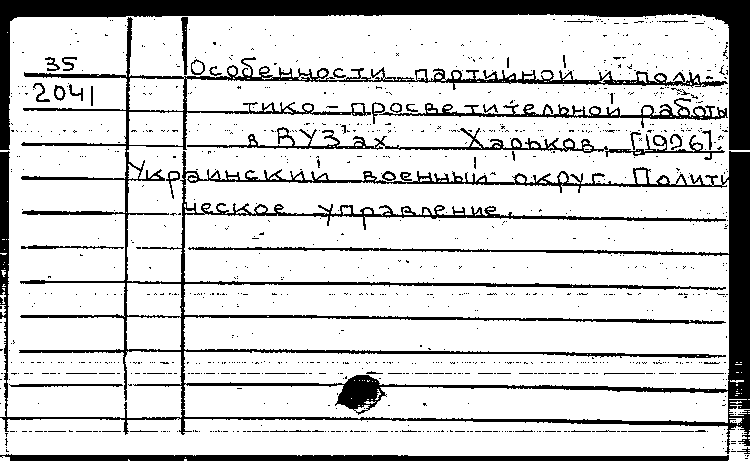 35
2041
Особенности партийной и поли-
тико-просветительной работы
в ВУЗ'ах Харьков, [1926].
Украинский военный округ. Полити
ческое управление.